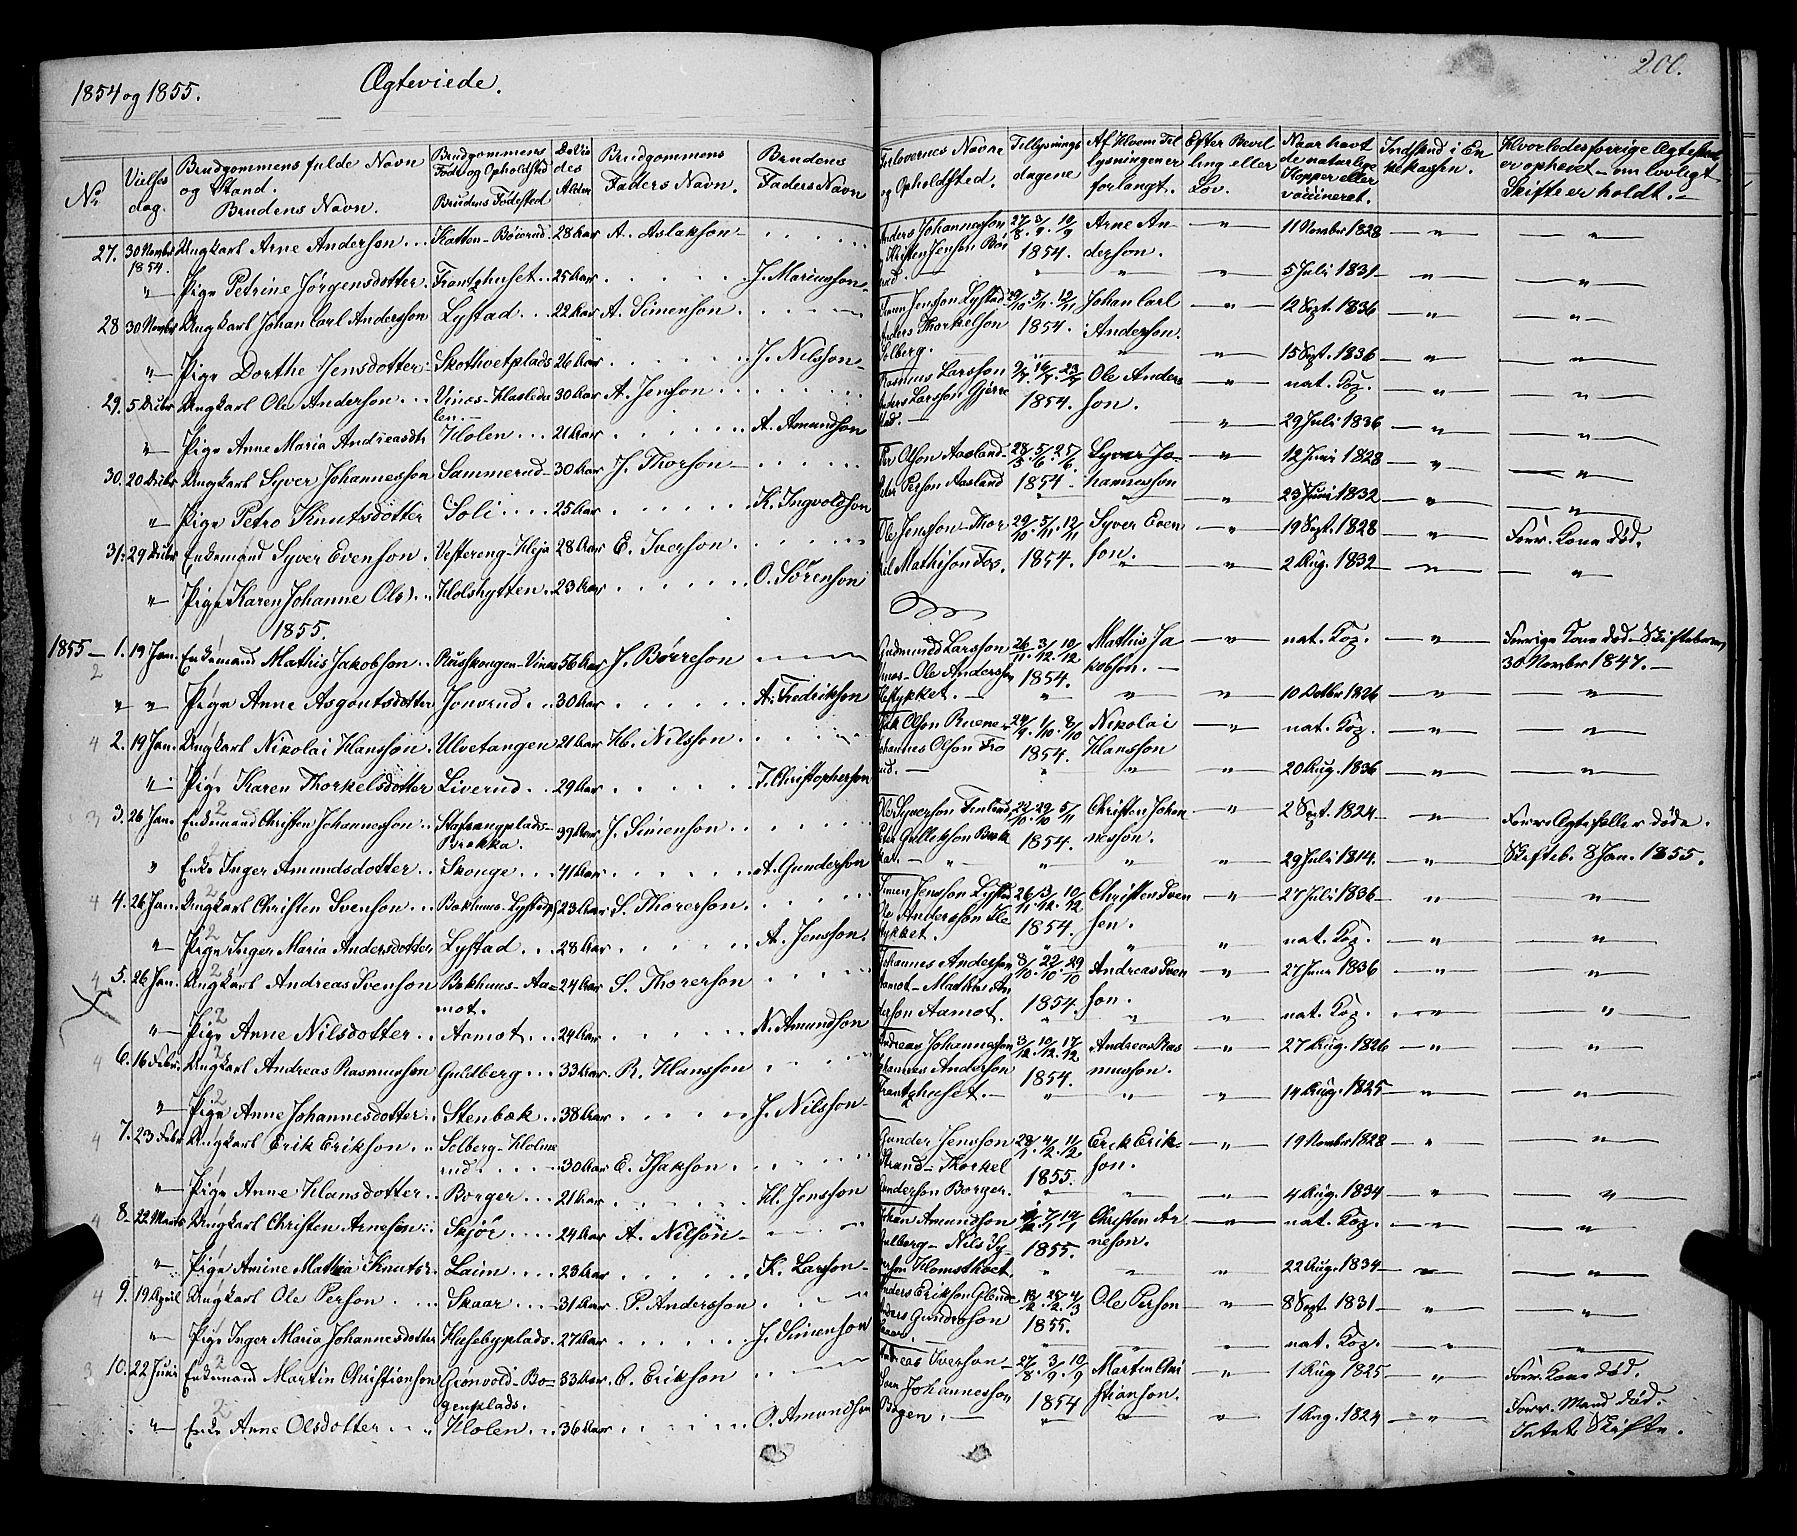 1854 og 1855. Ægteviede. 200.
No. Vielses dag. Brudgommens fulde Navn og Stand. Brudens Navn. Brudgommens Føde og Opholdsted Brudens Fødested De Vi des Alder Brudgommens Faders Navn. Brudens Faders Navn
Forlovernes Navne og Opholdsted. Tillysnings dagene Af Hvem Til lysningen er forlangt. Efter Bevil ling eller Lov. Naar havt de naturlige Kopper eller vaccineret. Indført i En kekassen. Hvorledes forrige Ægteskab er ophævet – om lovligt Skifte er holdt. –
27. 30 Novbr 1854. Ungkarl Arne Anderson Katten – Böierud 28 Aar A. Aslakson
Pige Petrine Jørgensdotter Frantzhuset 25 Aar J. Mariusson
28 30 Novbr Ungkarl Johan Carl Andersson Lystad 22 Aar A. Simenson
Pige Dorthe Jensdotter 26 Aar J. Nilsson
29. 5 Decbr Ungkarl Ole Anderson 30 Aar A. Jenson
Pige Anne Maria Andreasdtr Holen 21 Aar A. Amundson
30. 20 Decbr Ungkarl Syver Johannesson Sammerud 30 Aar J. Thorson
Pige Petro Knutsdotter Soli 25 Aar K. Ingvoldson
31. 29 Decbr Enkemand Syver Evenson Vestereng – Heja 28 Aar E. Iverson
Pige Karen Johanne Olsd. Holshytten 23 Aar O. Sörenson
1855.
1855 – 1. 19 Jan. Enkemand Mathis Jakobson 56 Aar J. Børreson
Pige Anne Asgautsdotter Jonsrud 30 Aar A. Fredrikson
2. 19 Jan. Ungkarl Nikolai Hansson Ulvetangen 21 Aar H. Nilsson
Pige Karen Thorkelsdotter Liverud 29 Aar T. Christopherson
3. 26 Jan. Enkemand Christen Johannesson 39 Aar J. Simenson
Enke Inger Amundsdotter Skonge 41 Aar A. Gunderson
4. 26 Jan. Ungkarl Christen Svenson 23 Aar S. Thorerson
Pige Inger Maria Andersdotter Lystad 28 Aar A. Jensson
5. 26 Jan. Ungkarl Andreas Svenson Bakhuus – Aamot. 24 Aar S. Thorerson
Pige Anne Nilsdotter Aamot 24 Aar N. Amundson
6. 16 Febr. Ungkarl Andreas Rasmusson Guldberg 33 Aar R. Hansson
Pige Anne Johannesdotter Stenbæk 38 Aar J. Nilsson
7. 23 Febr Ungkarl Erik Erikson Solberg – Holme rud 30 Aar E. Isakson
Pige Anne Hansdotter Borger 21 Aar H. Jensson
8. 22 Marts Ungkarl Christen Arneson Skjør 24 Aar A. Nilson
Pige Amine Mathea Knutsd. Laim 23 Aar K. Larson
9. 19 April Ungkarl Ole Person Skaar 31 Aar P. Andersson
Pige Inger Maria Johannesdotter Husebyplads 27 Aar J. Simenson
10. 22 Juni Enkemand Martin Christianson Grönvold – Bo genplads. 33 Aar C. Erikson
Enke Anne Olsdotter Holen 36 Aar O. Amundson
Anders Johannesson Christen Jenson Bøi rud. 27/8. 3/9. 10/9 1854. Arne An derson. 11 Novbr 1828
5 Juli 1831
Jensson Lystad Anders Thorkelson Solberg. 29/10. 5/11. 12/11 1854. Johan Carl Anderson. 12 Sept. 1836
15 Sept. 1836
Rasmus Larsson Anders Larsson Gjerre stad. 9/7. 16/7. 23/7 1854. Ole Anders son. nat. Kop.
29 Juli 1836
Per Olson Aasland Person Aasland 28/5. 5/6. 25/6. 1854. Syver Jo hannesson 12 Juni 1828
23 Juni 1832
Ole Jensson Thor kel Mathison Fos. 29/10. 5/11. 12/11 1854. Syver Even son. 19 Sept. 1828 Forr. Kone död.
2 Aug. 1832
Gudmund Larsson Vines – Ole Anderson 26/11. 3/12. 10/12 1854. Mathis Ja kobson. nat. Kop. Forrige Kone død – Skiftebrev 30 Novbr 1847.
10 Octbr 1826
Olson Johannes Olson 24/9. 1/10. 8/10 1854. Nikolai Hansson nat. Kop.
20 Aug. 1836
Syverson Finland Gulleikson 22/10. 29/10. 5/11 1854. Christen Johan nesson. 2 Sept. 1824 Forr. Ægtefæller døde.
29 Juli 1814. Skifteb. 8 Jan. 1855.
Simen Jensson Lystad Ole Andersson 26/11. 3/12. 10/12 1854. Christen Sven sen. 27 Juli 1836
nat. Kop.
Johannes Anderson Aamot – Mathis An derson Aamot. 8/10. 22/10. 29/10 1854. Andreas Sven son. 27 Juni 1836
nat. Kop.
Andreas Johannesson Johannes Anderson Frantzhuset. 3/12. 10/12. 17/12 1854. Andreas Ras musson. 27 Aug. 1826
14 Aug. 1825
Gunder Jensson Strand – Thorkel Gunderson Borger. 1855. Erik Erik son. 19 Novbr 1828
4 Aug. 1834
Johan Amundson Gulberg – Nils Sy verson 7/1. 14/1 1855. Christen Ar neson. nat. Kop.
22 Aug. 1834
Anders Erikson Anders Gunderson Skaar. 18/2. 25/2. 4/3 1855. Ole Person 8 Sept. 1831
nat. Kop.
Andreas Iverson Johannesson Bogen. 27/8. 3/9. 10/9 1854 Martin Chri stianson. 1 Aug 1825 Forr. Kone død.
1 Aug. 1824 Forr. Mand død. Intet Skifte.